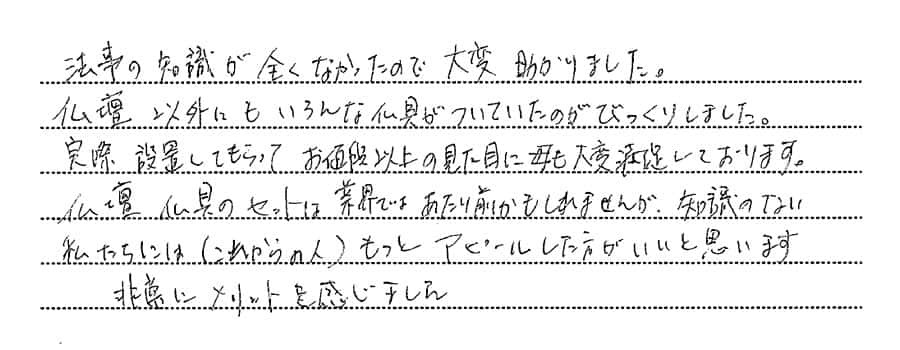 法事の知識が全くなかったので大変助かりました。
仏壇以外にもいろんな仏具がついていたのがびっくりしました。
実際設置してもらってお値段以上の見た目に母も大変満足しております。
仏壇仏具のセットは業界ではあたり前かもしれませんが、知識のない
私たちには(これからの人)もっとアピールした方がいいと思います
非常にメリットを感じました